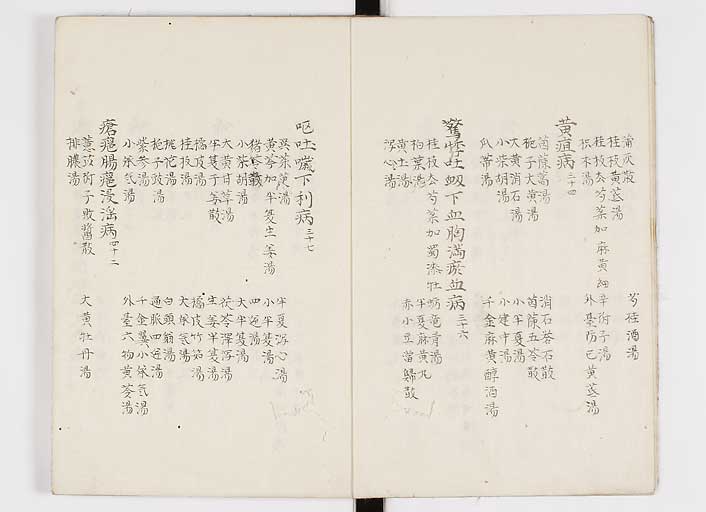 蒲灰散
桂枝黄茋湯 芍薬酒湯
桂枝去芍薬加麻黄細辛附子湯
枳朮湯 外臺防己黄茋湯
黄疸病 三十四
茵蔯蒿湯 消石礬石散
梔子大黄湯 茵蔯五苓散
大黄消石湯 小半夏湯
小柴胡湯 小建中湯
瓜蒂湯 千金麻黄醇酒湯
驚悸吐衂下血胸満瘀血病 三十六
桂枝去芍薬加蜀漆牡蛎竜骨湯
柏葉湯 半夏麻黄丸
黄土湯 赤小豆當歸散
瀉心湯
呕吐噦下利病 三十七
呉茱萸湯 半夏瀉心湯
黄芩加半夏生姜湯 小半夏湯
猪苓散 四逆湯
小柴胡湯 大半夏湯
大黄甘草湯 茯苓澤瀉湯
半夏干姜散 生姜半夏湯
橘皮湯 橘皮竹筎湯
桂枝湯 大承気湯
桃花湯 白頭翁湯
梔子豉湯 通脈四逆湯
紫参湯 千金翼小承気湯
小承気湯 外臺六物黄芩湯
瘡癰腸癰浸淫病 四十二
薏苡附子敗醤散
排膿湯 大黄牡丹湯